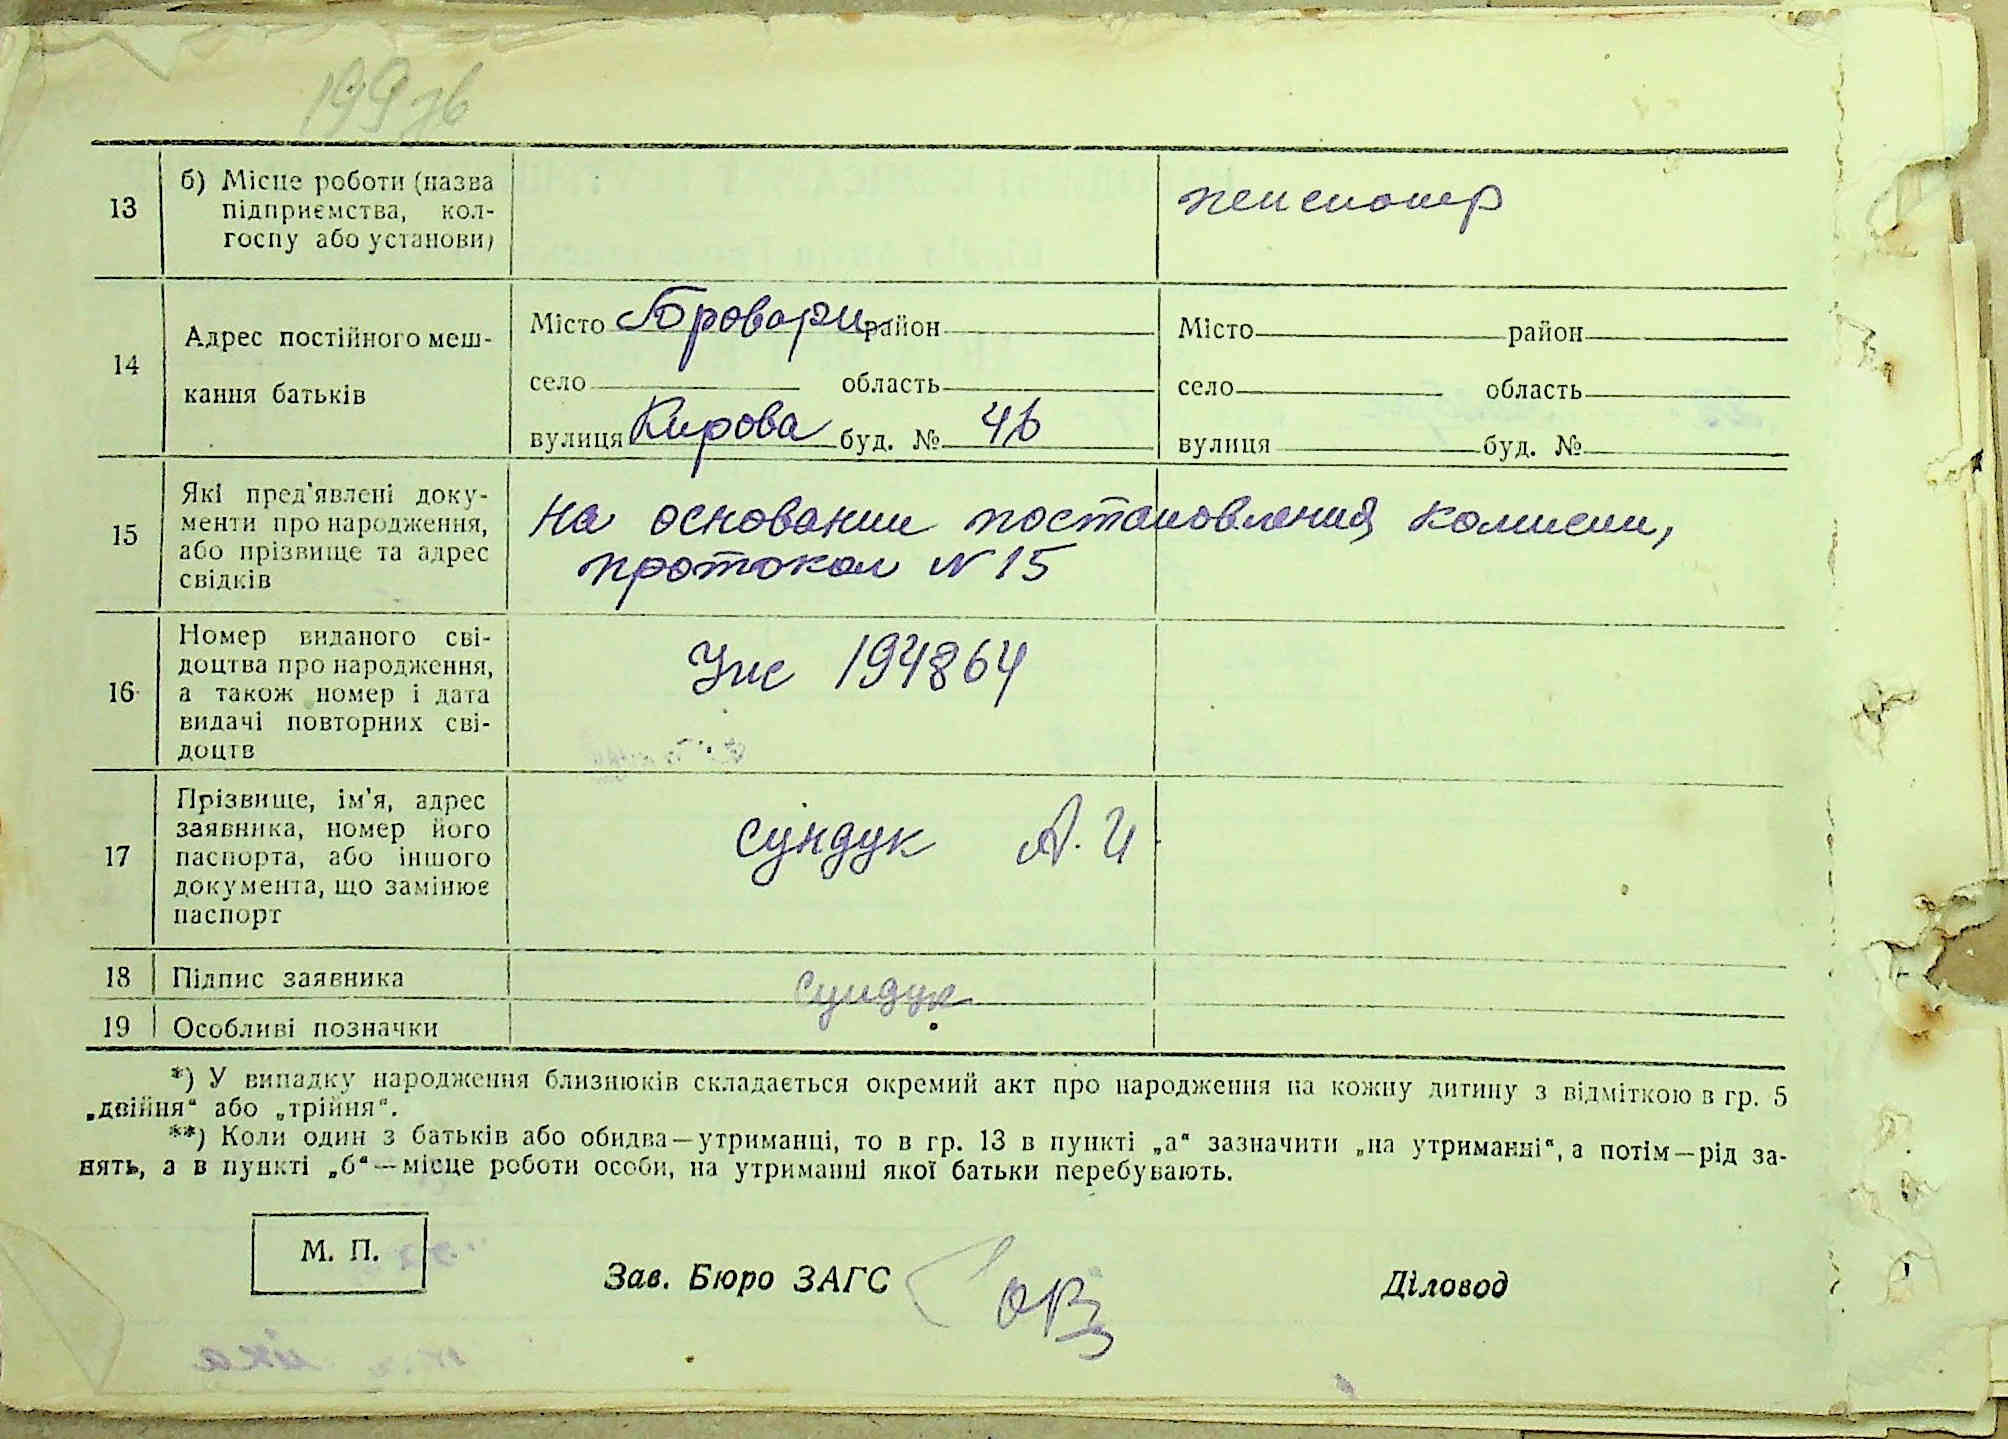 199 зв
13
б) Місце роботи (назва
підприємства, кол-
госпу або установи)
пенсионер
14
Адрес постійного меш-
кання батьків
Місто Бровари район
село область
вулиця Кирова буд. № 46
Місто район
село область
вулиця буд. №
15
Які пред'явлені доку-
менти про народження,
або прізвище та адрес
свідків
На основании постановления комисии,
протокол N 15
16
Номер виданого сві-
доцтва про народження,
а також номер і дата
видачі повторних сві-
доцтв
194864
17
Прізвище, ім'я, адрес
заявника, номер його
паспорта, або іншого
документа, що замінює
паспорт
Сундук А. И
18
Підпис заявника
Сундук
19
Особливі позначки
*) У випадку народження близнюків складається окремий акт про народження на кожну дитину з відміткою в гр. 5
„двійня“ або „трійня“.
**) Коли один з батьків або обидва—утриманці, то в гр. 13 в пункті „а“ зазначити „на утриманні“, а потім—рід за-
нять, а в пункті „б“—місце роботи особи, на утриманні якої батьки перебувають.
М. П.
Зав. Бюро ЗАГС
Діловод